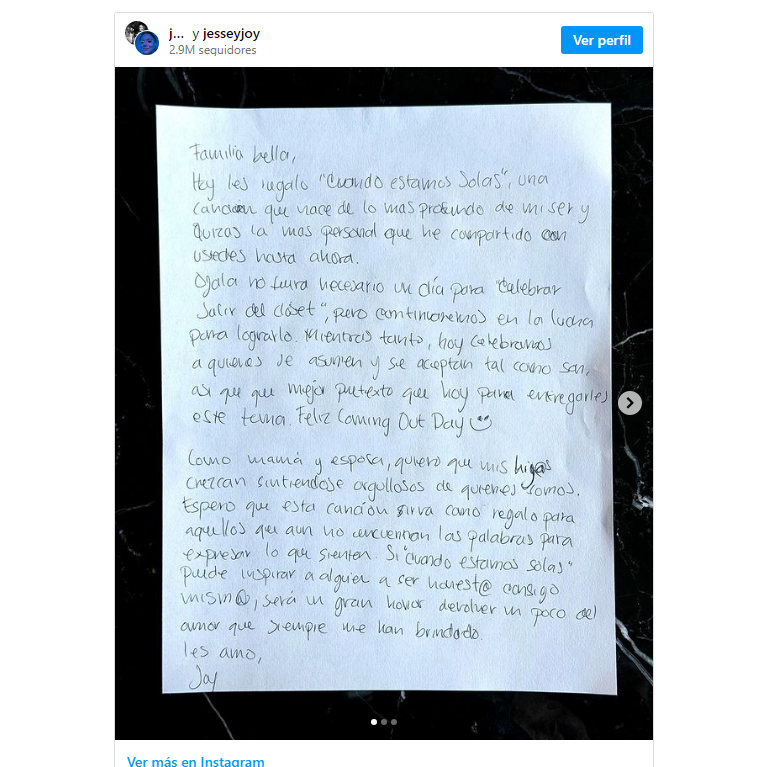 j... y jesseyjoy
2.9M seguidores
Ver perfil
Familia bella,
Hoy les regalo "Cuando estamos Solas", una
canción que nace de lo mas profundo de mi ser y
Quizas la mas personal que he compartido con
ustedes hasta ahora.
Ojala no fuera necesario un día para "Celebrar
Salir del closet", pero continuaremos en la lucha
para lograrlo. Mientras tanto, hoy celebramos
a quienes se asumen y se aceptan tal como son,
asi que que mejor pretexto que hoy para entregarles
este tema. Feliz Coming Out Day
Como mamá y esposa, quiero que mis hij@s
crezcan sintiendose orgullosos de quienes somos.
Espero que esta canción sirva como regalo para
aquellos que aun no encuentran las palabras para
expresar lo que sienten. Si "Cuando estamos solas"
puede inspirar a alguien a ser honest@ consigo
mism@, será un gran honor devolver un poco del
amor que siempre me han brindado.
les amo,
Joy
Ver más en Instagram